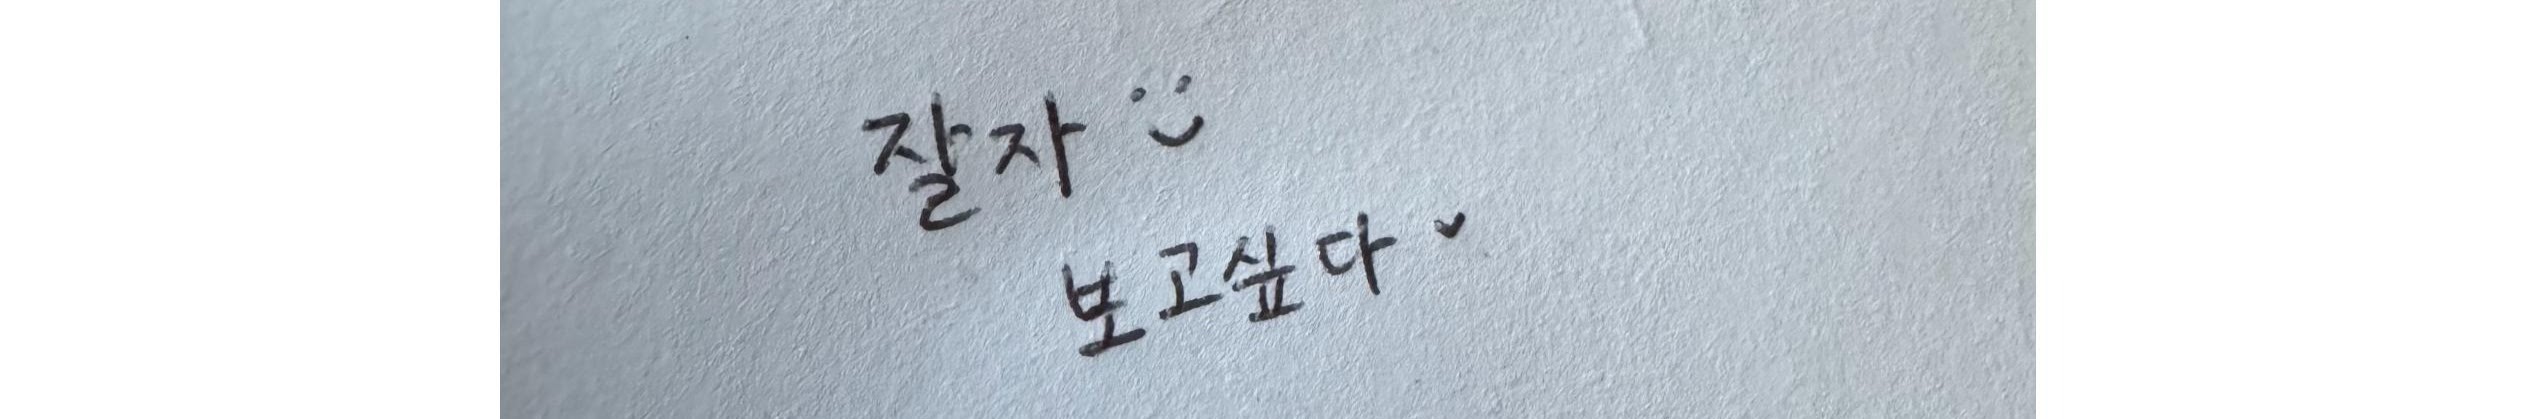 잘자 :)
보고싶다 ♥